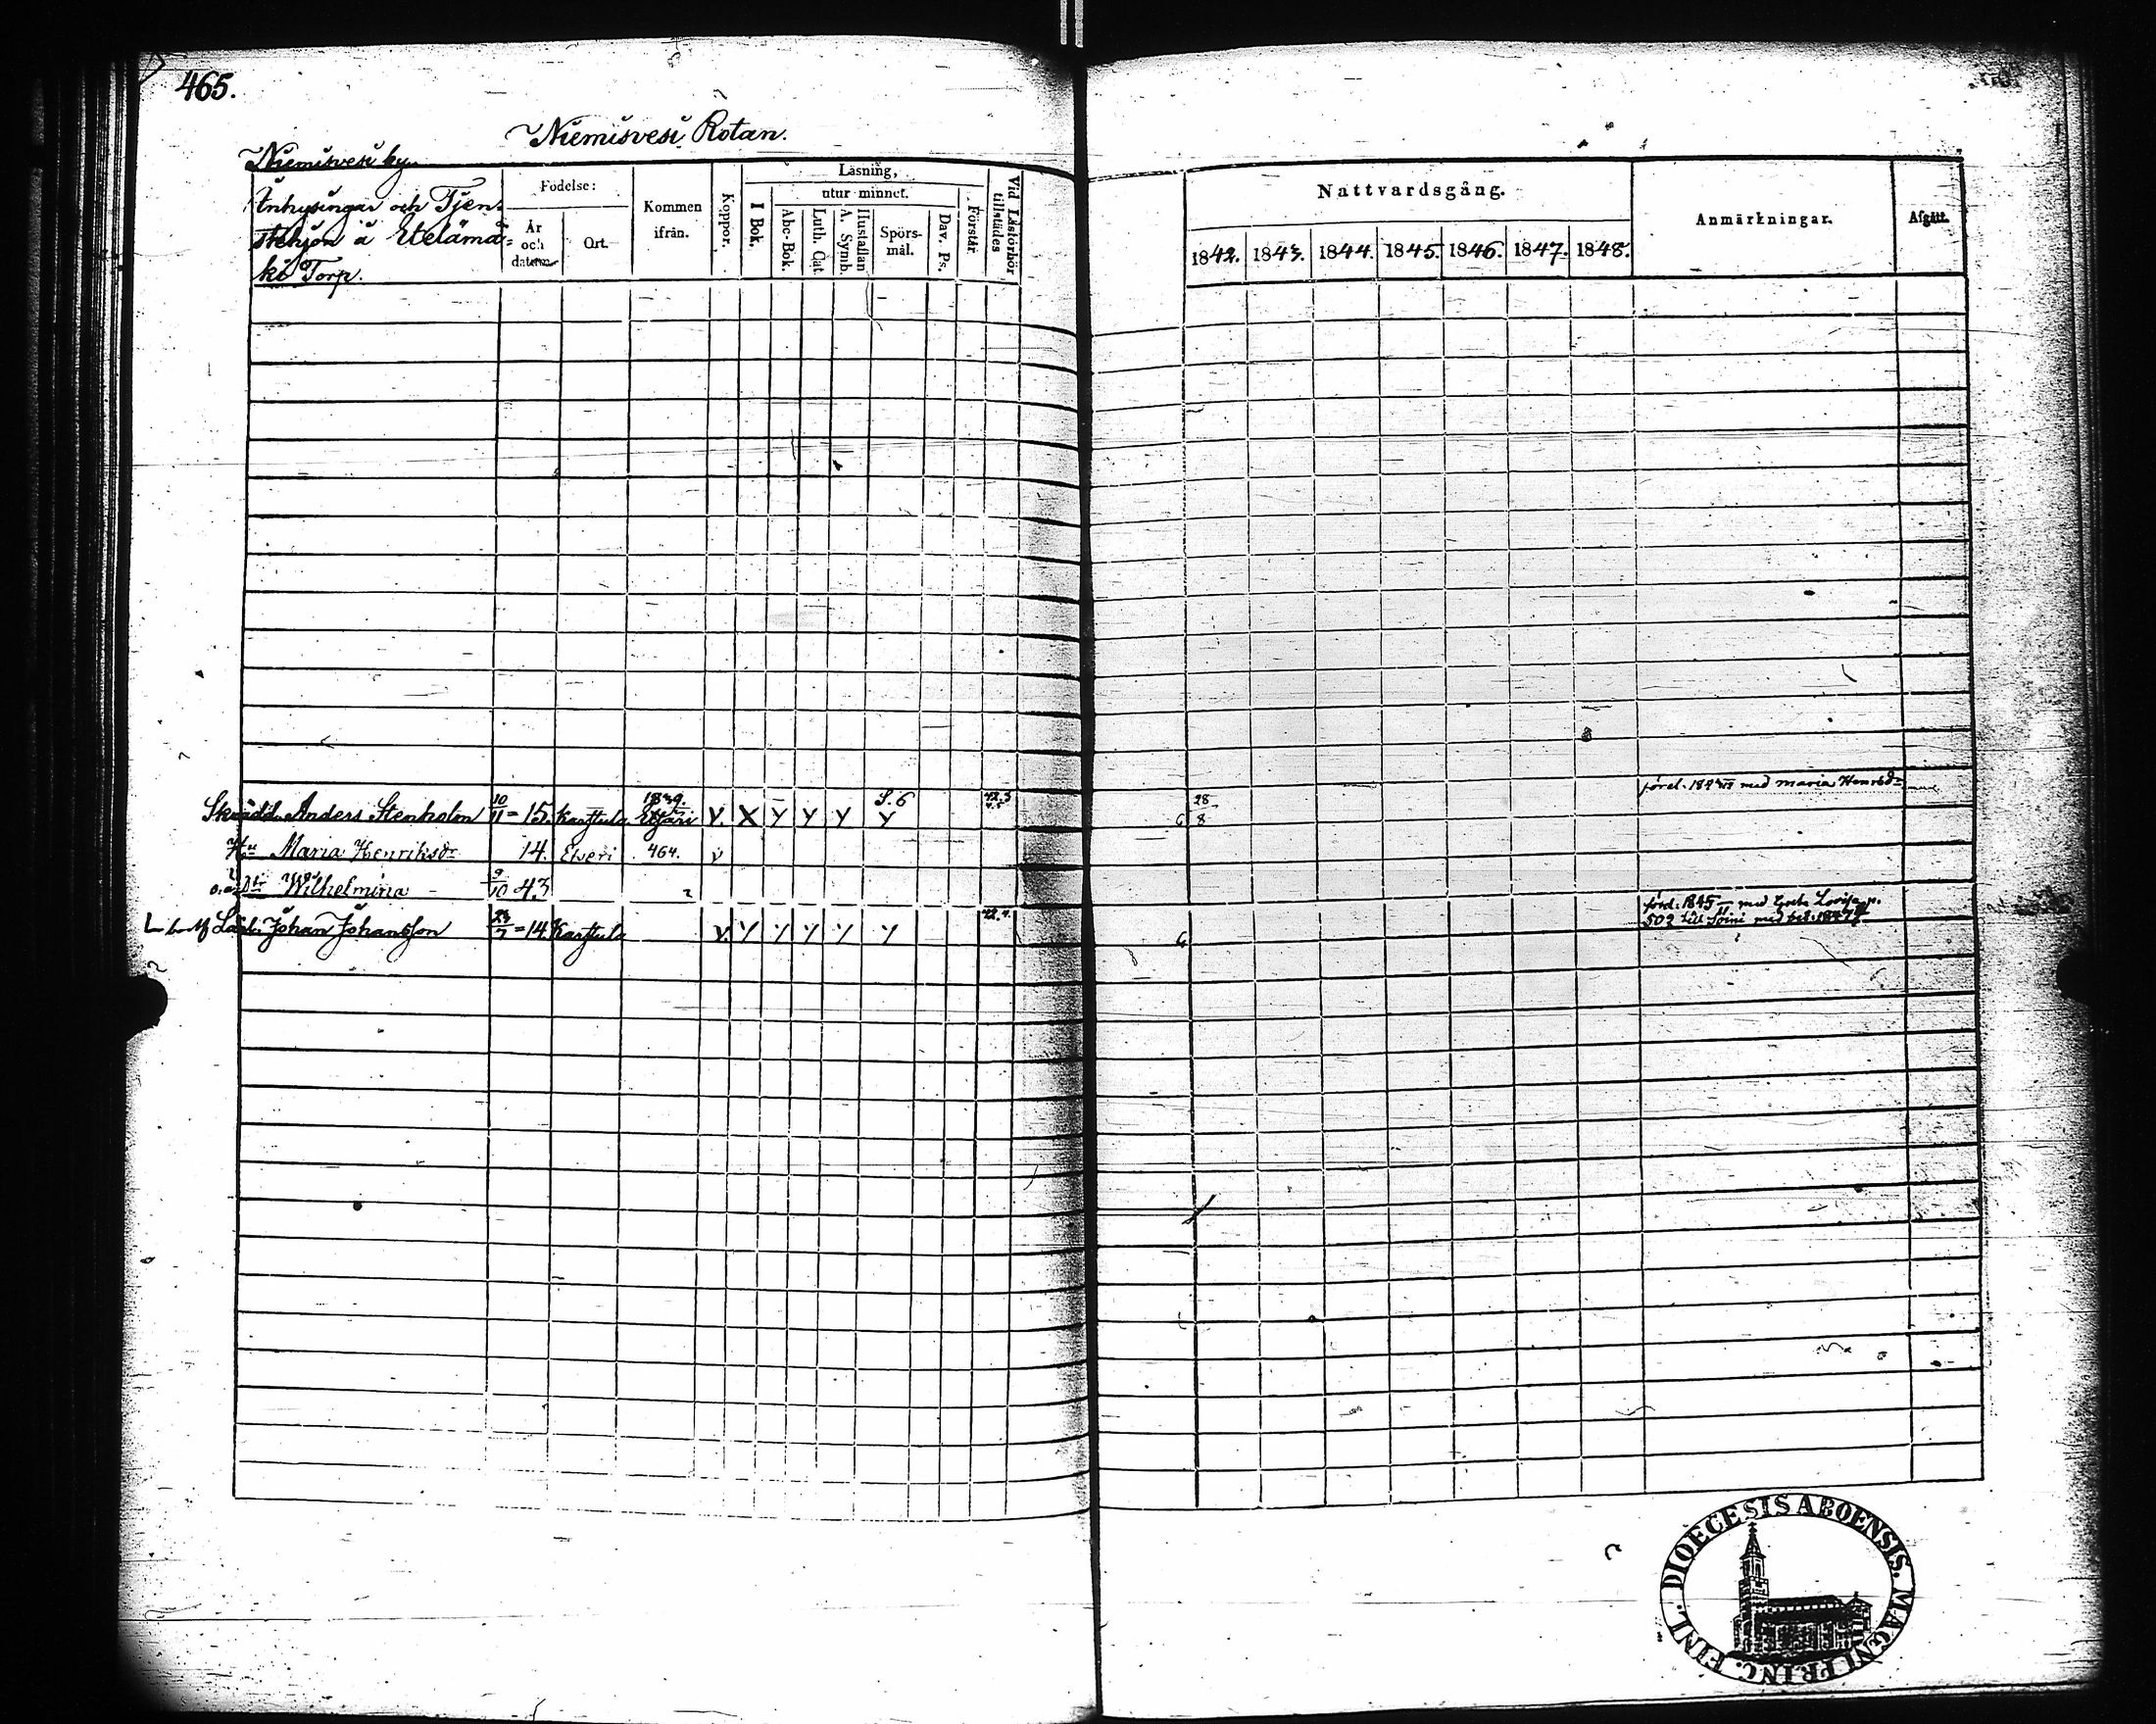 465.
Niemisvesi Rotan.
Niemisvesi by.
Inhysingar och Tjen-
stehjon å Etelämä-
ki Torp.
Födelse:
År och datum
Ort.
Kommen ifrån.
Koppor.
Läsning,
I Bok.
utur minnet.
Abc-Bok.
Luth. Cat.
Hustaflan A. Symb.
Spörs-mål.
Dav. Ps.
Förstår.
Vid Läsförhör tillstädes
Nattvardsgång.
1842. 1843. 1844. 1845. 1846. 1847. 1848.
Anmärkningar.
Afgått.
Skrädd. Anders Stenholm 10/11 = 15. Karstula 1839. Etjäri V. X Y Y Y S. 6 Y 42.3 28 8 med Maria Henrsdr
Hu Maria Henriksdr 14. Everi 464. v
Dtr Wilhelmina 9/10 43
Johan Johansson 23/7 = 14. Karstula V. Y Y Y Y Y 42.4. 1845 med Greta Lovisa
502 till Soini med bet. 1847
DIOECESIS ABOENSIS. MAGNI PRINC. FINL.